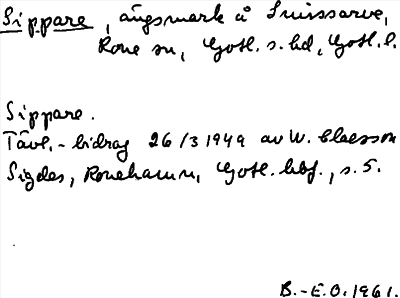 Sippare, ängsmark å Snissarve,
Rone sn, Gotl. s. hd, Gotl. l.
Sippare.
Tävl.-bidrag 26/3 1949 av W. Claesson
Sigdes, Ronehamn, Gotl. hbf., s. 5.
B.-E.O. 1961.